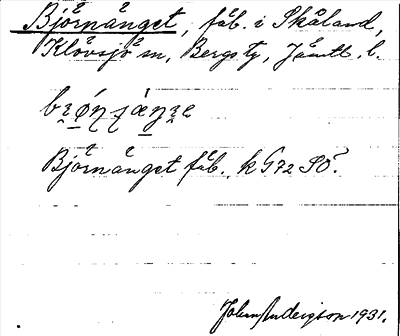 Björnänget, fäb. i Skåland,
Klövsjö sn, Bergs tg, Jämtl. l.
Björnänget fäb. k G72 SÖ.
John Anderzson 1931.